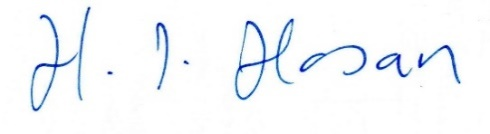 H. I. Hasan